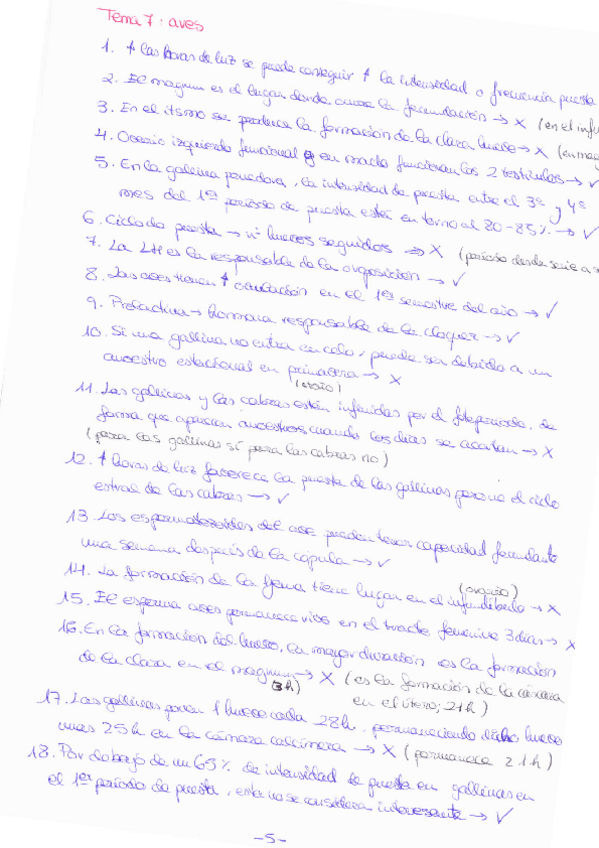 Tema 7: aves
1. ↑ las horas de luz se puede conseguir ↑ la intensidad o frecuencia puesta
2. El magnum es el lugar donde ocurre la fecundación → X (en el infu
3. En el itsmo se produce la formación de la clara huevo → X (en mag
4. Ovario izquierdo funcional y en macho funcionan los 2 testículos → ✓
5. En la gallina ponedora, la intensidad de puesta entre el 3º y 4º
mes del 1er período de puesta está en torno al 80-85% → ✓
6. Ciclo de puesta → nº huevos seguidos → X (período desde serie a s
7. La LH es la responsable de la ovoposición → ✓
8. Las aves tienen ↑ ovulación en el 1er semestre del año → ✓
9. Prolactina → hormona responsable de la cloquez → ✓
10. Si una gallina no entra en celo, puede ser debido a un
anoestro estacional en primavera → X
(otoño)
11. Las gallinas y las cabras están influidas por el fotoperiodo, de
forma que aparecen anoestros cuando los días se acortan → X
(para las gallinas sí para las cabras no)
12. ↑ horas de luz favorece la puesta de las gallinas pero no el ciclo
estral de las cabras → ✓
13. Los espermatozoides del ave pueden tener capacidad fecundante
una semana después de la cópula → ✓
(ovario)
14. La formación de la yema tiene lugar en el infundíbulo → X
15. El esperma aves permanece vivo en el tracto femenino 3 días → X
16. En la formación del huevo, la mayor duración es la formación
de la clara en el magnum → X (es la formación de la cáscara
(3h) en el útero; 21h)
17. Las gallinas ponen 1 huevo cada 28h, permaneciendo dicho huevo
unas 25h en la cámara calcífera → X (permanece 21h)
18. Por debajo de un 65% de intensidad de puesta en gallinas en
el 1er período de puesta, esta no se considera interesante → ✓
-5-